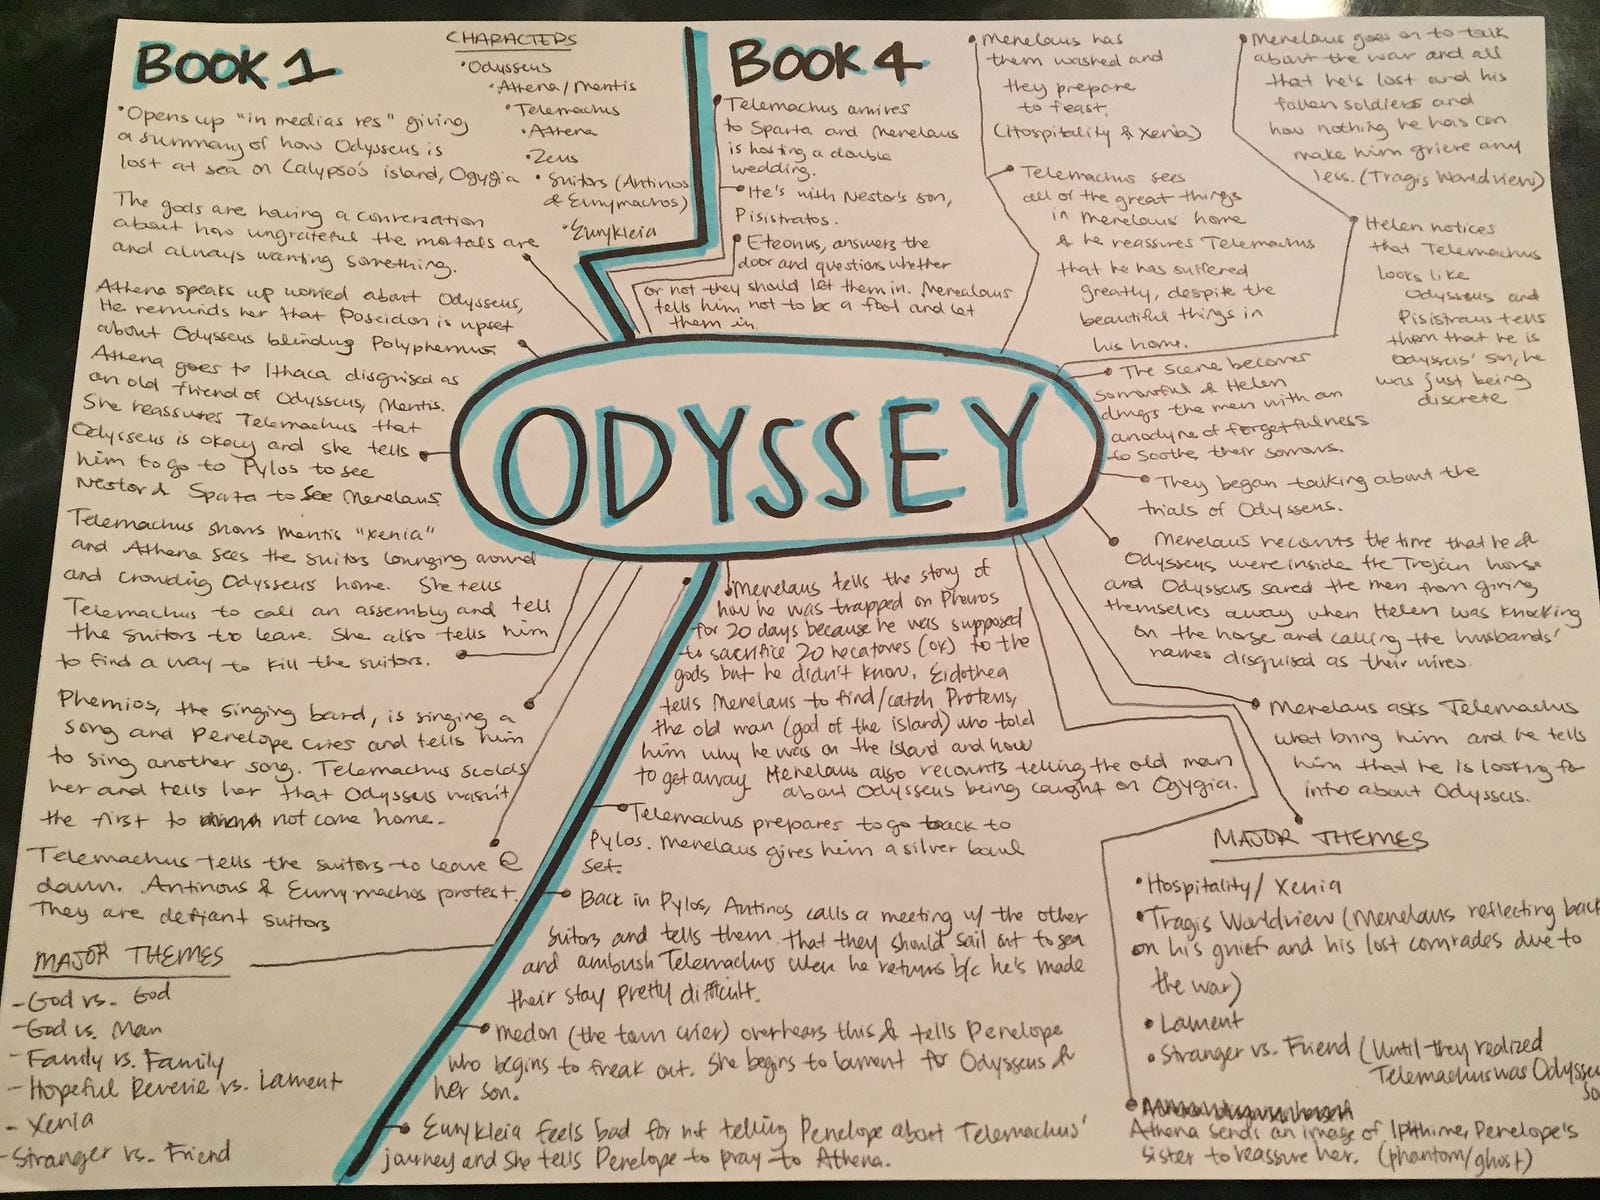 BOOK 1
• Opens up "in medias res" giving
a summary of how Odysseus is
lost at sea on Calypso's island, Ogygia
The gods are having a conversation
about how ungrateful the mortals are
and always wanting something.
Athena speaks up worried about Odysseus,
He reminds her that Poseidon is upset
about Odysseus blinding Polyphemus.
Athena goes to Ithaca disguised as
an old friend of Odysseus, Mentis.
She reassures Telemachus that
Odysseus is okay and she tells
him to go to Pylos to see
Nestor & Sparta to see Menelaus.
Telemachus shows Mentis "xenia"
and Athena sees the suitors lounging around
and crowding Odysseus home. She tells
Telemachus to call an assembly and tell
the suitors to leave. She also tells him
to find a way to kill the suitors.
Phemios, the singing bard, is singing a
song and Penelope cries and tells him
to sing another song. Telemachus scolds
her and tells her that Odysseus wasn't
the first to not come home.
Telemachus tells the suitors to leave @
dawn. Antinous & Eurymachos protest.
They are defiant suitors
MAJOR THEMES
- God vs. God
- God vs. Man
- Family vs. Family
- Hopeful Reverie vs. Lament
- Xenia
- Stranger vs. Friend
CHARACTERS
• Odysseus
• Athena/Mentis
• Telemachus
• Athena
• Zeus
• Suitors (Antinos
& Eurymachos)
• Eurykleia
ODYSSEY
BOOK 4
Telemachus arrives
to Sparta and Menelaus
is hosting a double
wedding.
He's with Nestor's son,
Pisistratos.
Eteonus, answers the
door and questions whether
or not they should let them in. Menealaus
tells him not to be a fool and let
them in.
Menelaus has
them washed and
they prepare
to feast.
(Hospitality & Xenia)
Telemachus sees
all of the great things
in Menelaus home
& he reassures Telemachus
that he has suffered
greatly, despite the
beautiful things in
his home.
Menelaus goes on to talk
about the war and all
that he's lost and his
fallen soldiers and
how nothing he has can
make him grieve any
less. (Tragis Worldview)
Helen notices
that Telemachus
looks like
Odysseus and
Pisistraus tells
them that he is
Odysseus' son, he
was just being
discrete
The scene becomes
sorrowful & Helen
drugs the men with an
anodyne of forgetfulness
to soothe their sorrows.
They began talking about the
trials of Odysseus.
Menelaus recounts the time that he &
Odysseus were inside the Trojan horse
and Odysseus saved the men from giving
themselves away when Helen was knocking
on the horse and calling the husbands'
names disguised as their wives.
Menelaus asks Telemachus
what bring him and he tells
him that he is looking for
info about Odysseus.
Menelaus tells the story of
how he was trapped on Pharos
for 20 days because he was supposed
to sacrifice 20 hecatones (ox) to the
gods but he didn't know. Eidothea
tells Menelaus to find/catch Proteus,
the old man (god of the island) who told
him why he was on the island and how
to get away. Menelaus also recounts telling the old man
about Odysseus being caught on Ogygia.
Telemachus prepares to go back to
Pylos. Menelaus gives him a silver bowl
set.
Back in Pylos, Antinos calls a meeting w/ the other
suitors and tells them that they should sail out to sea
and ambush Telemachus when he returns b/c he's made
their stay pretty difficult.
Medon (the town crier) overhears this & tells Penelope
who begins to freak out. She begins to lament for Odysseus &
her son.
Eurykleia feels bad for not telling Penelope about Telemachus'
journey and she tells Penelope to pray to Athena.
MAJOR THEMES
• Hospitality/Xenia
• Tragis Worldview (Menelaus reflecting back
on his grief and his lost comrades due to
the war)
• Lament
• Stranger vs. Friend (Until they realized
Telemachus was Odysseu
so
Athena sends an image of Ipthime, Penelope's
sister to reassure her. (phantom/ghost)